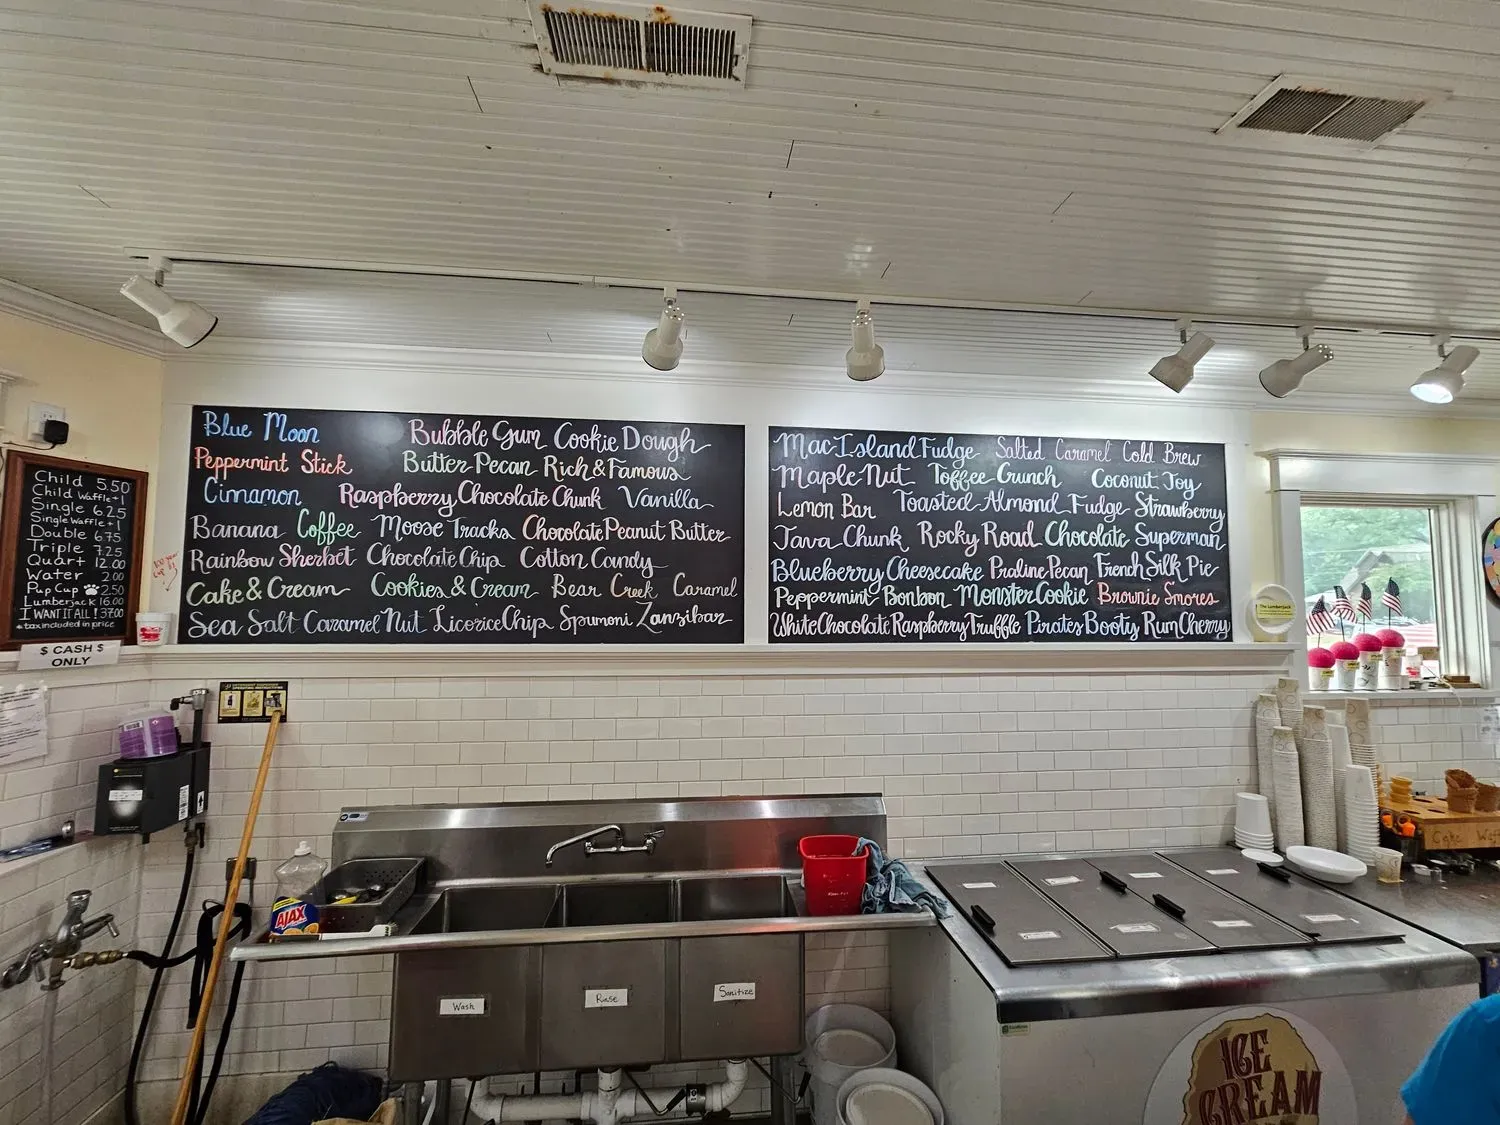 Child 5.50
Child Waffle+1
Single 6.25
Single Waffle+1
Double 6.75
Triple 7.25
Quart 12.00
Water 2.00
Pup Cup 2.50
Lumberjack 16.00
I WANT IT ALL! 37.00
*tax included in price
$ CASH $
ONLY
Blue Moon Bubble Gum Cookie Dough
Peppermint Stick Butter Pecan Rich & Famous
Cinnamon Raspberry Chocolate Chunk Vanilla
Banana Coffee Moose Tracks Chocolate Peanut Butter
Rainbow Sherbet Chocolate Chip Cotton Candy
Cake & Cream Cookies & Cream Bear Creek Caramel
Sea Salt Caramel Nut Licorice Chip Spumoni Zanzibar
Mac Island Fudge Salted Caramel Cold Brew
Maple Nut Toffee Crunch Coconut Joy
Lemon Bar Toasted Almond Fudge Strawberry
Java Chunk Rocky Road Chocolate Superman
Blueberry Cheesecake Praline Pecan French Silk Pie
Peppermint Bonbon Monster Cookie Brownie Smores
White Chocolate Raspberry Truffle Pirates Booty Rum Cherry
The Lumberjack
AJAX
Wash
Rinse
Sanitize
Cake
ICE
CREAM